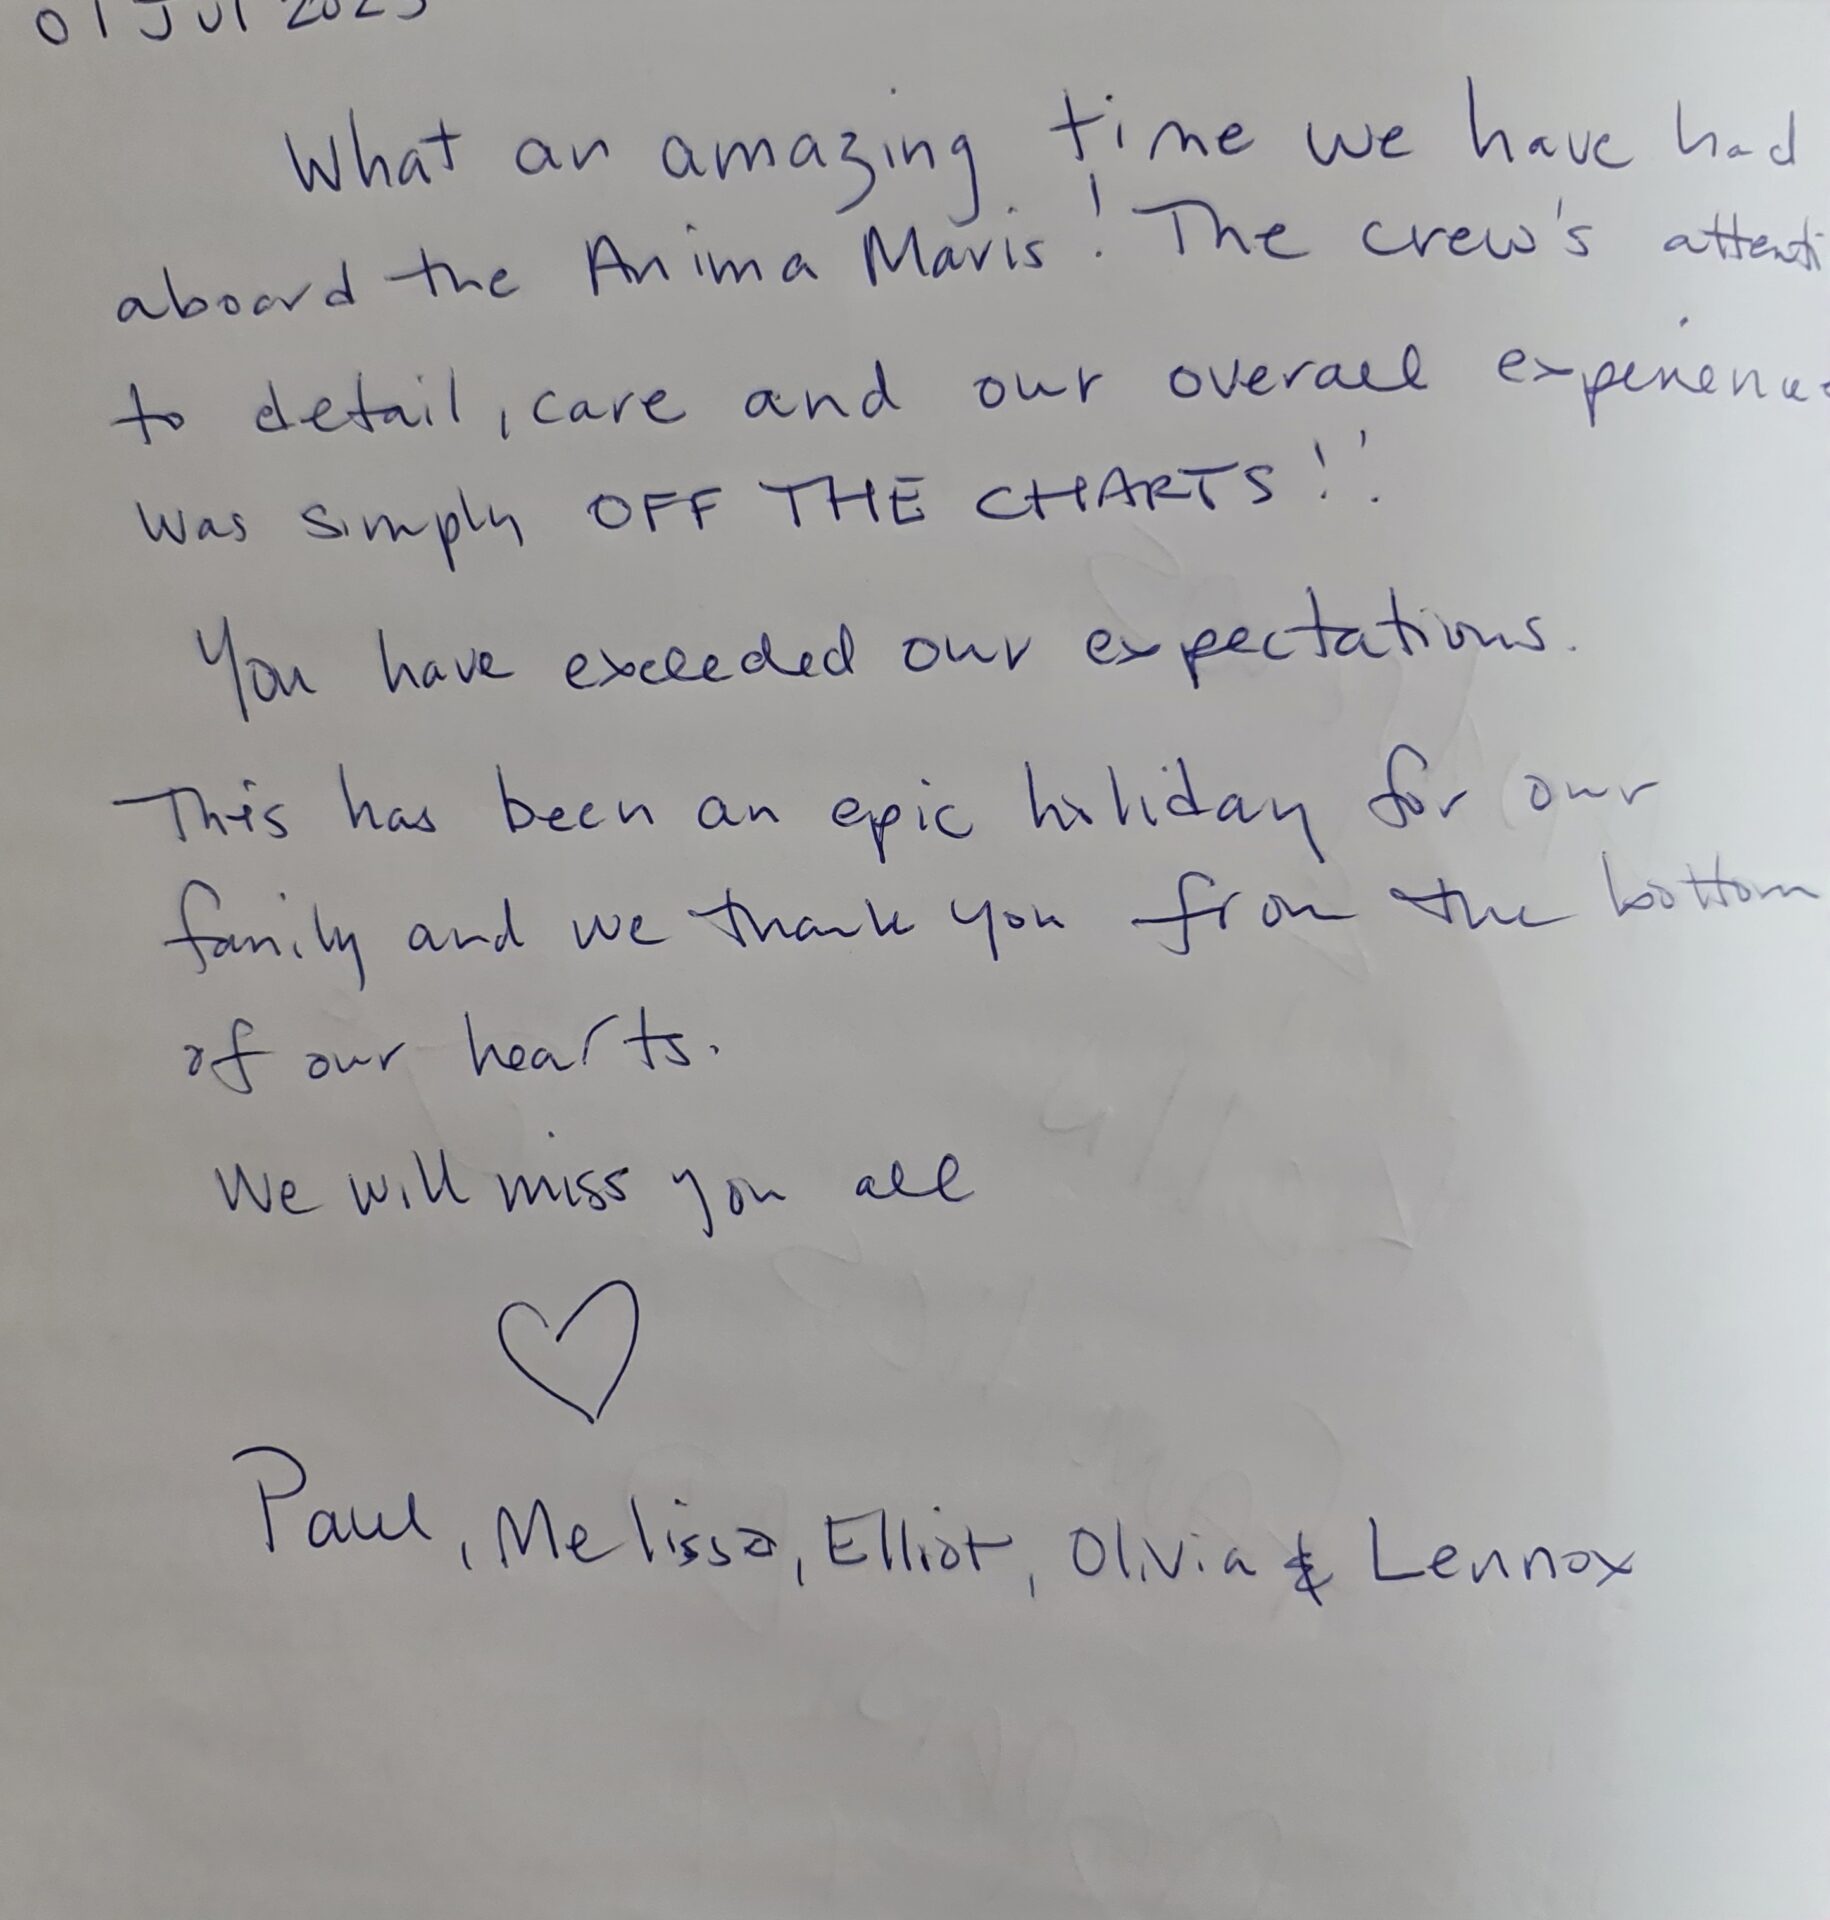 01 Jul 2023
What an amazing time we have had
aboard the Anima Maris! The crew's attenti
to detail, care and our overall experience
was simply OFF THE CHARTS!!
You have exceeded our expectations.
This has been an epic holiday for our
family and we thank you from the bottom
of our hearts.
We will miss you all
Paul, Melissa, Elliot, Olivia & Lennox